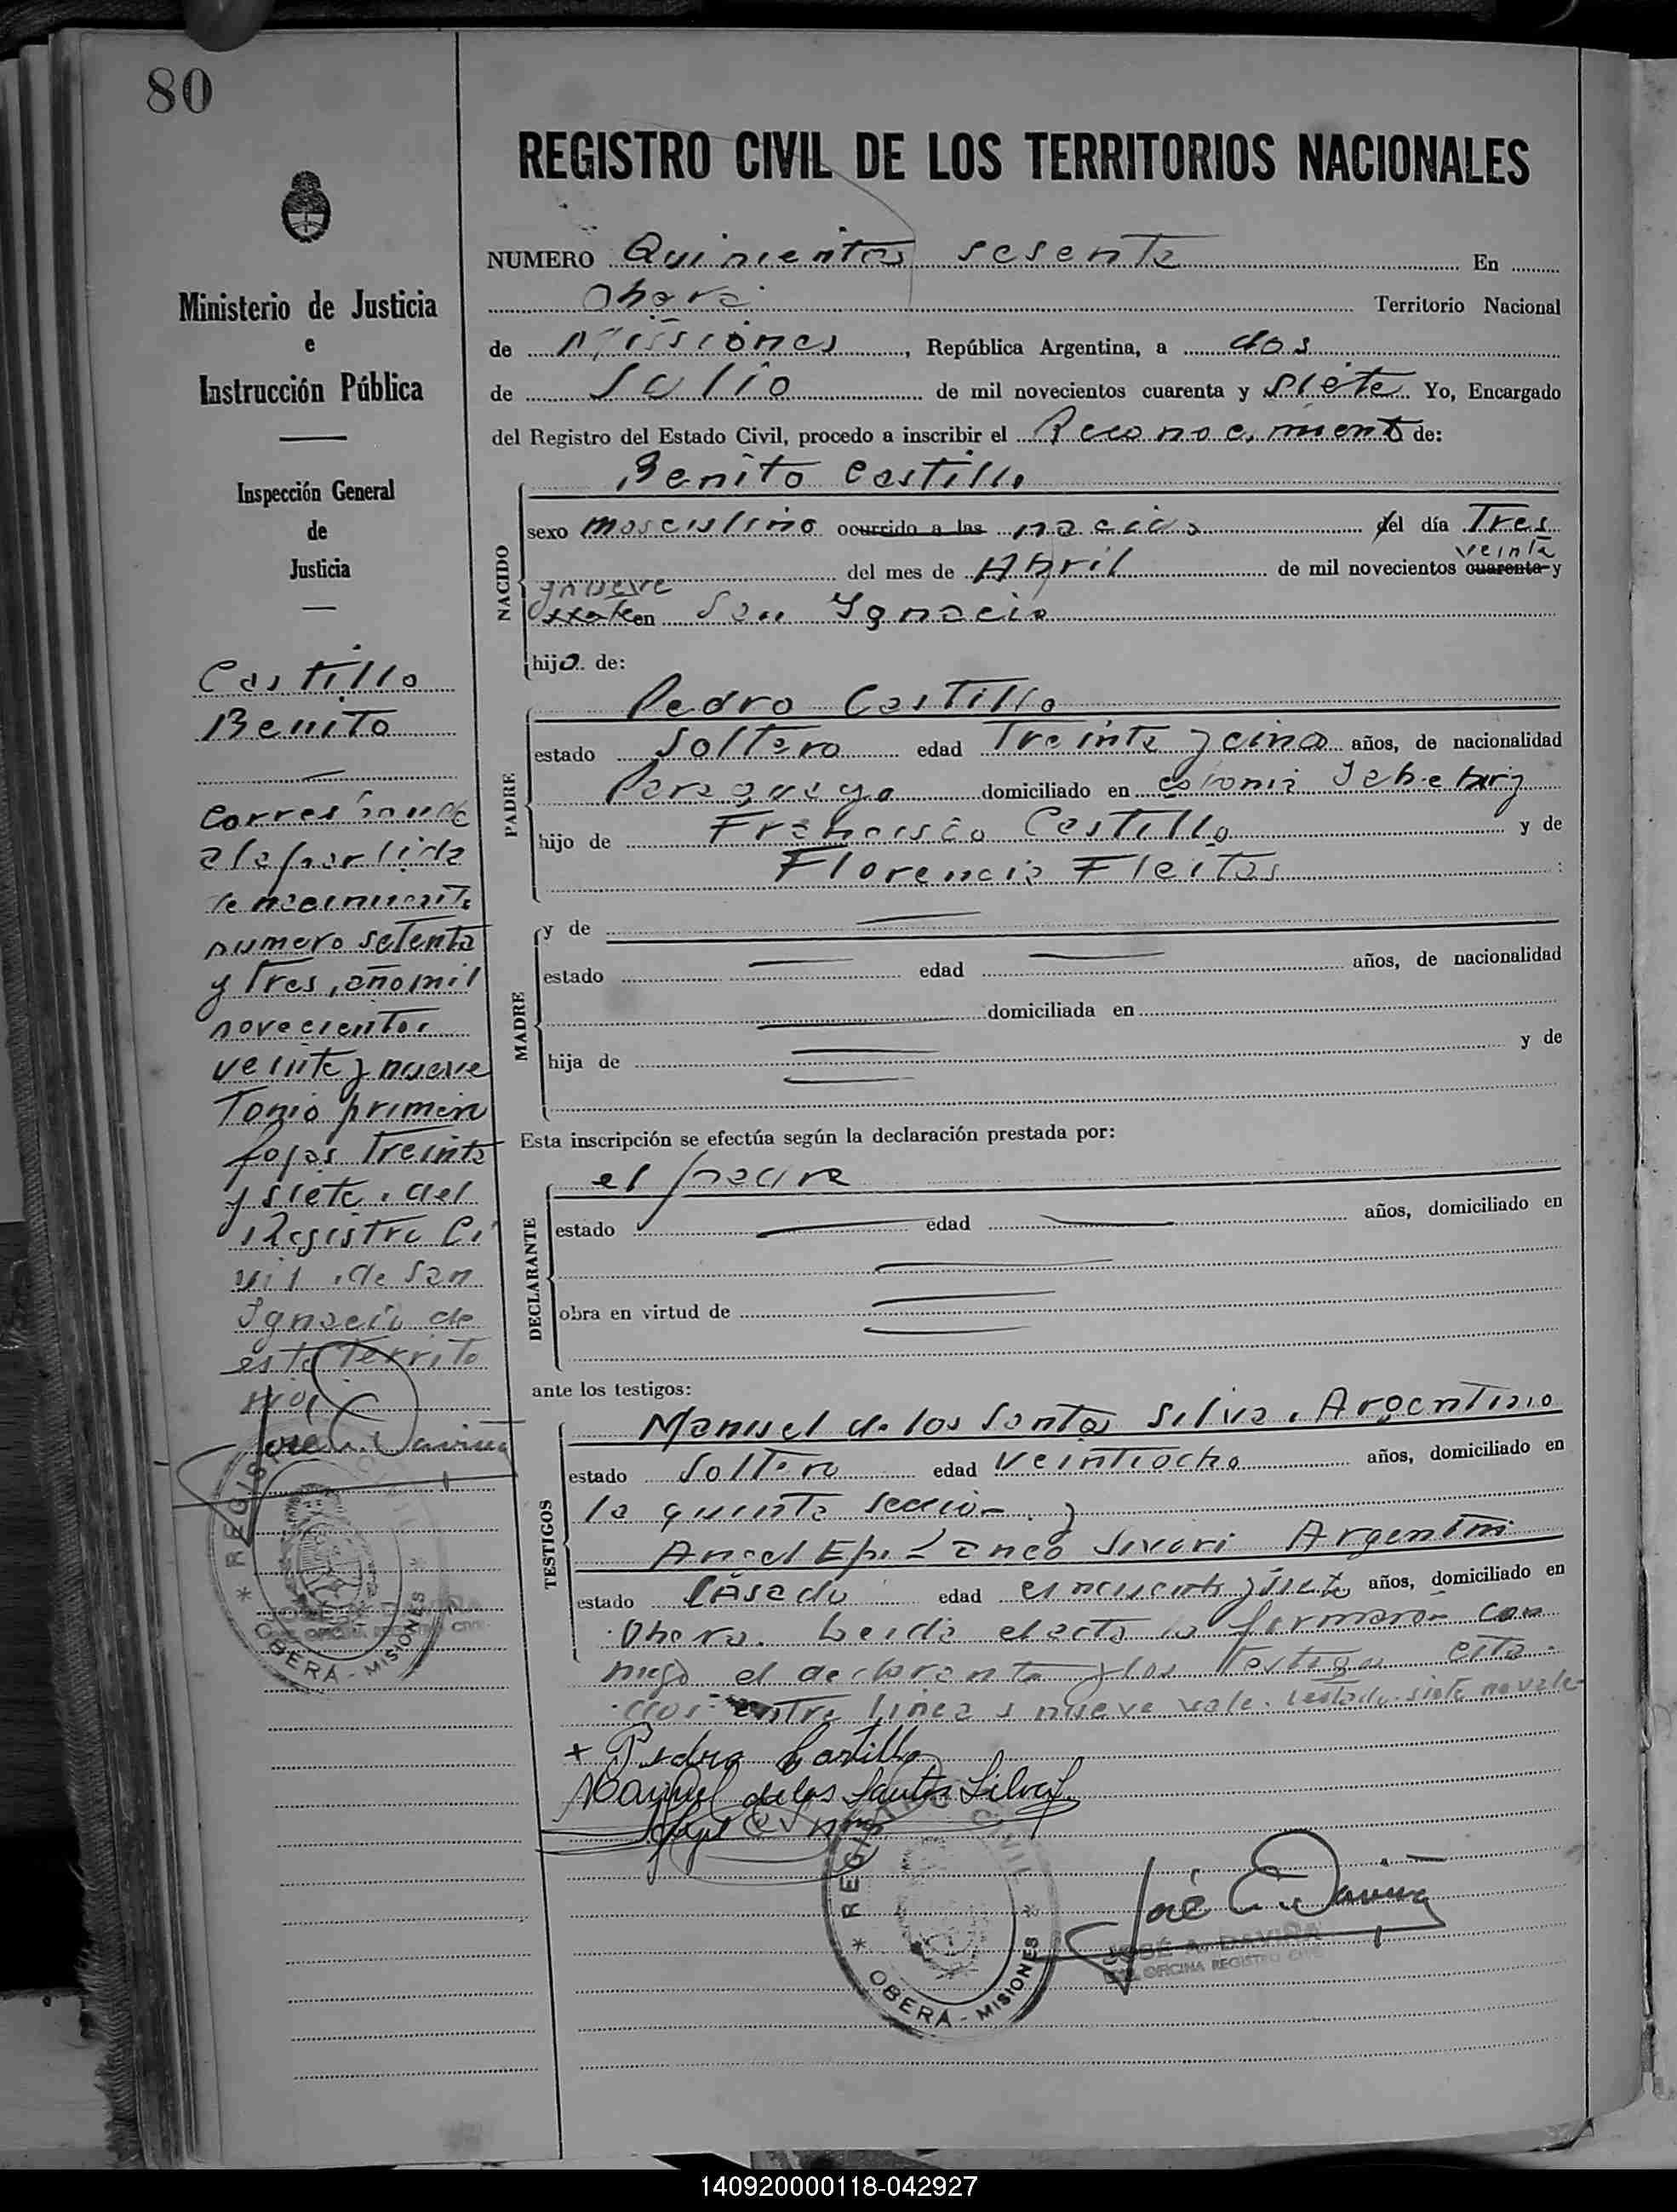 80
Ministerio de Justicia
e
Instrucción Pública
Inspección General
de
Justicia
Castillo
Benito
corresponde
a la partida
de nacimiento
numero setenta
y tres, año mil
novecientos
veinte y nueve
Tomo primero
fojas treinta
y siete, del
Registro Ci
vil, de San
Ignacio de
este territo
rio
REGISTRO CIVIL
OBERÁ - MISIONES
REGISTRO CIVIL DE LOS TERRITORIOS NACIONALES
NUMERO Quinientos sesenta En
Obera Territorio Nacional
de Missiones, República Argentina, a dos
de Julio de mil novecientos cuarenta y siete Yo, Encargado
del Registro del Estado Civil, procedo a inscribir el Reconocimiento de:
Benito Castillo
NACIDO
sexo masculino ocurrido a las nacido del día Tres
veinte
del mes de Abril de mil novecientos cuarenta y
nueve
en San Ignacio
hijo de:
PADRE
Pedro Castillo
estado Soltero edad Treinta y cinco años, de nacionalidad
Paraguaya domiciliado en colonia Yabebiry
hijo de Francisco Castillo y de
Florencia Fleitas
MADRE
y de
estado edad años, de nacionalidad
domiciliada en
hija de y de
Esta inscripción se efectúa según la declaración prestada por:
DECLARANTE
el padre
estado edad años, domiciliado en
obra en virtud de
ante los testigos:
TESTIGOS
Manuel de los Santos Silva, Argentino
estado Soltero edad veintiocho años, domiciliado en
la quinta seccion y
Angel Argentino
estado Casado edad cincuenta y siete años, domiciliado en
Obera. Leida el acta la firmaron con
migo el declarante y los testigos cita
dos entre lineas nueve vale. testado siete no vale
+ Pedro Castillo
Manuel de los Santos Silva
REGISTRO CIVIL
OBERÁ - MISIONES
José A. Daviña
JOSÉ A. DAVIÑA
OFICINA REGISTRO CIVIL
140920000118-042927